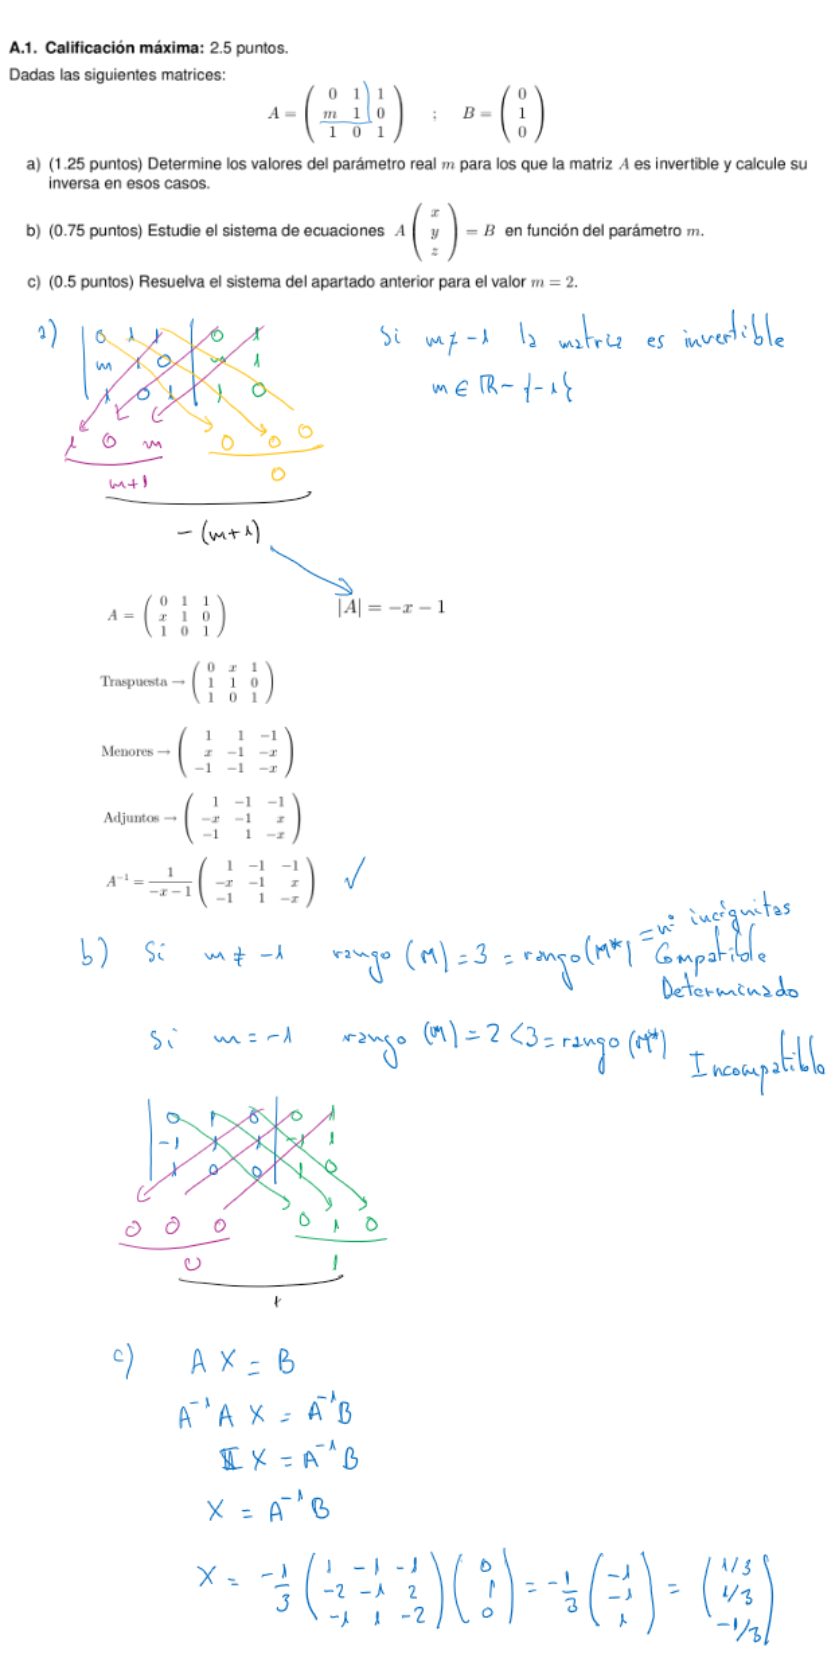 A.1. Calificación máxima: 2.5 puntos.
Dadas las siguientes matrices:
A = ( 0 1 1 ; m 1 0 ; 1 0 1 ) ; B = ( 0 ; 1 ; 0 )
a) (1.25 puntos) Determine los valores del parámetro real m para los que la matriz A es invertible y calcule su
inversa en esos casos.
b) (0.75 puntos) Estudie el sistema de ecuaciones A ( x ; y ; z ) = B en función del parámetro m.
c) (0.5 puntos) Resuelva el sistema del apartado anterior para el valor m = 2.
a) | 0 1 1 | 0 1
m 1 0 | m 1
1 0 1 | 1 0
1 0 m 0 0 0
m+1 0
-(m+1)
Si m ≠ -1 la matriz es invertible
m ∈ ℝ - {-1}
A = ( 0 1 1 ; x 1 0 ; 1 0 1 ) |A| = -x - 1
Traspuesta → ( 0 x 1 ; 1 1 0 ; 1 0 1 )
Menores → ( 1 1 -1 ; x -1 -x ; -1 -1 -x )
Adjuntos → ( 1 -1 -1 ; -x -1 x ; -1 1 -x )
A⁻¹ = 1/(-x - 1) ( 1 -1 -1 ; -x -1 x ; -1 1 -x ) ✓
b) Si m ≠ -1 rango (M) = 3 = rango (M*) = nº incógnitas
Compatible
Determinado
Si m = -1 rango (M) = 2 < 3 = rango (M*) Incompatible
| 0 1 0 | 0 1
-1 1 1 | -1 1
1 0 0 | 1 0
0 0 0 0 1 0
0 1
1
c) A X = B
A⁻¹ A X = A⁻¹ B
I X = A⁻¹ B
X = A⁻¹ B
X = -1/3 ( 1 -1 -1 ; -2 -1 2 ; -1 1 -2 ) ( 0 ; 1 ; 0 ) = -1/3 ( -1 ; -1 ; 1 ) = ( 1/3 ; 1/3 ; -1/3 )